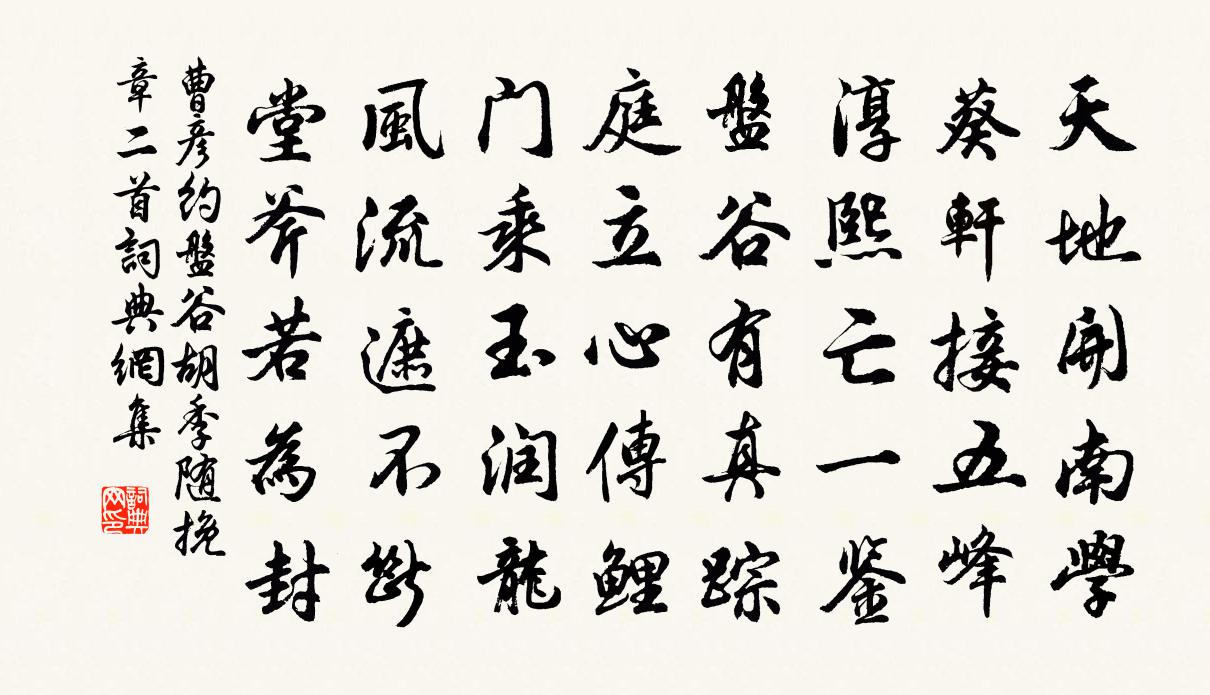 天地開南學
葵軒接五峰
淳熙亡一鉴
盤谷有真踪
庭立心傳鯉
门乘玉润龍
風流遮不斷
堂斧若為封
曹彦约盤谷胡季随挽
章二首詞典網集
詞典网印